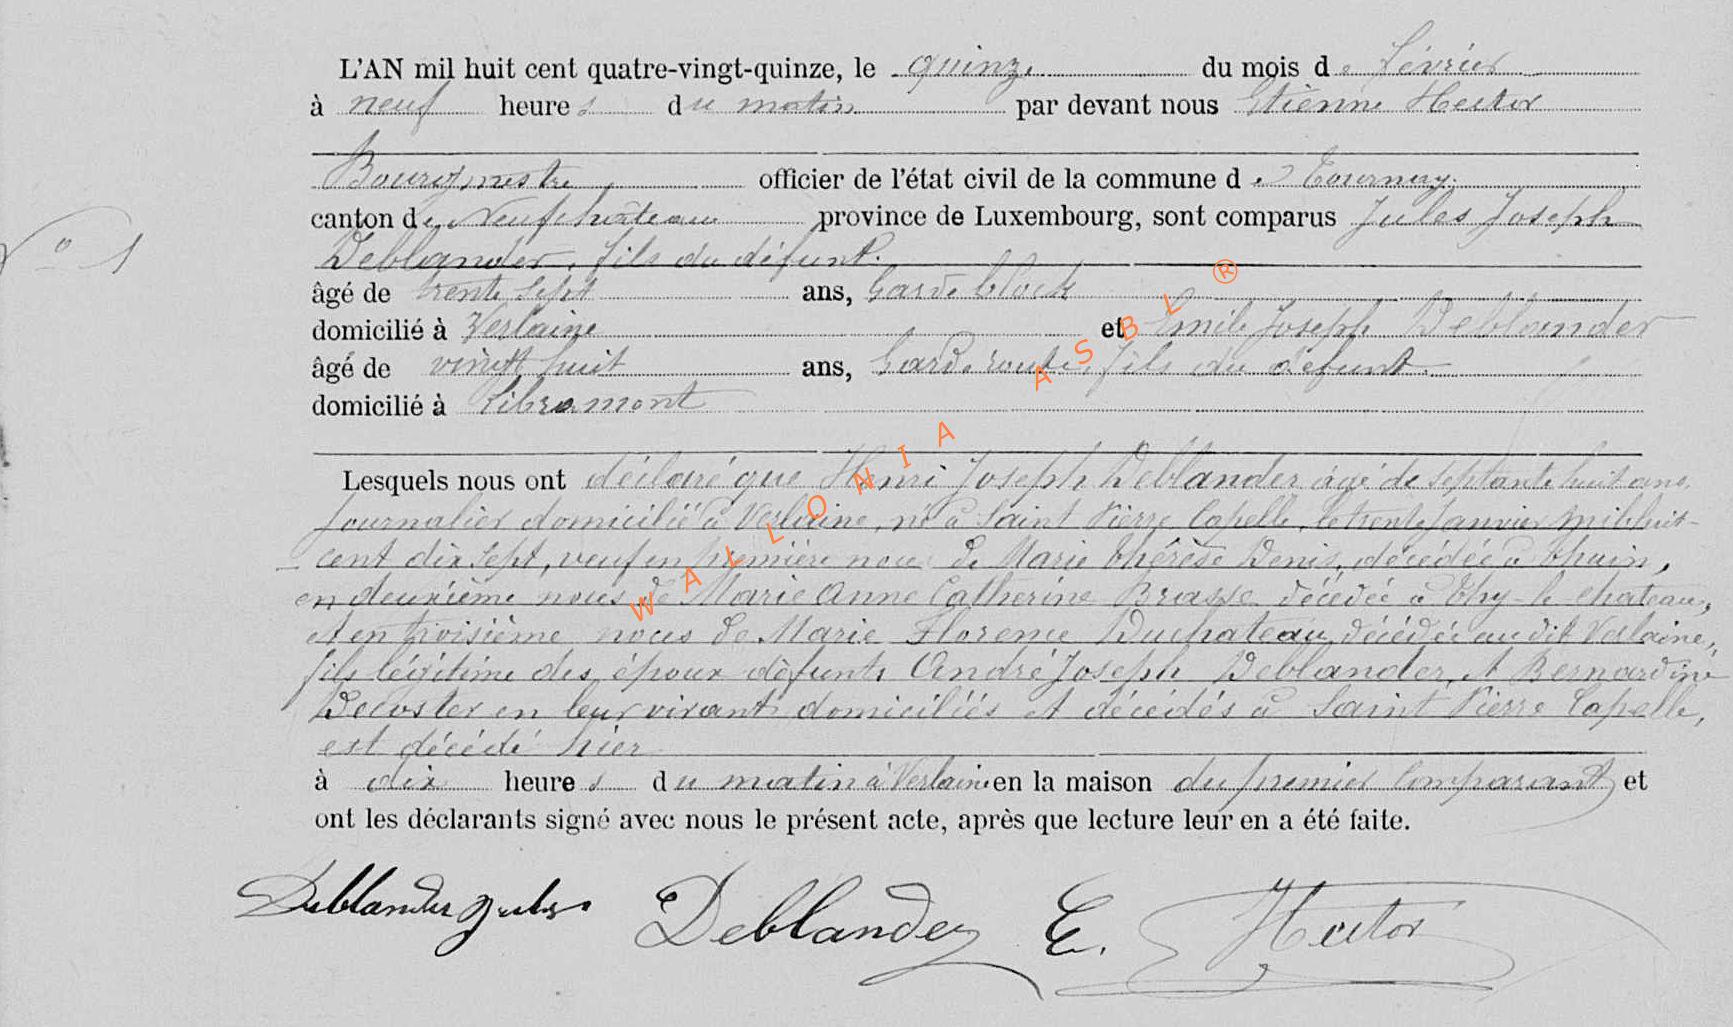 L'AN mil huit cent quatre-vingt-quinze, le quinze du mois de février
à neuf heures du matin par devant nous Etienne Hector
Bourgmestre officier de l'état civil de la commune de Tournay
canton de Neufchâteau province de Luxembourg, sont comparus Jules Joseph
N° 1
Deblander, fils du défunt.
âgé de trente sept ans, Garde block
domicilié à Verlaine et Emile Joseph Deblander
âgé de vingt huit ans, Garde route, fils du défunt.
domicilié à Libramont
Lesquels nous ont déclaré que Henri Joseph Deblander âgé de septante huit ans,
journalier domicilié à Verlaine, né à Saint Pierre Capelle, le trente Janvier mil huit-
cent dix sept, veuf en première noces de Marie Thérèse Denis, décédée à Thuin,
en deuxième noces de Marie Anne Catherine Brasse décédée à Thy-le-chateau,
et en troisième noces de Marie Florence Duchateau, décédée au dit Verlaine,
fils légitime des époux défunts André Joseph Deblander, et Bernardine
Decoster en leur vivant domiciliés et décédés à Saint Pierre Capelle,
est décédé hier
à dix heures du matin à Verlaine en la maison du premier Comparant et
ont les déclarants signé avec nous le présent acte, après que lecture leur en a été faite.
Deblander Jules Deblander E. Hector
WALLONIA ASBL ®